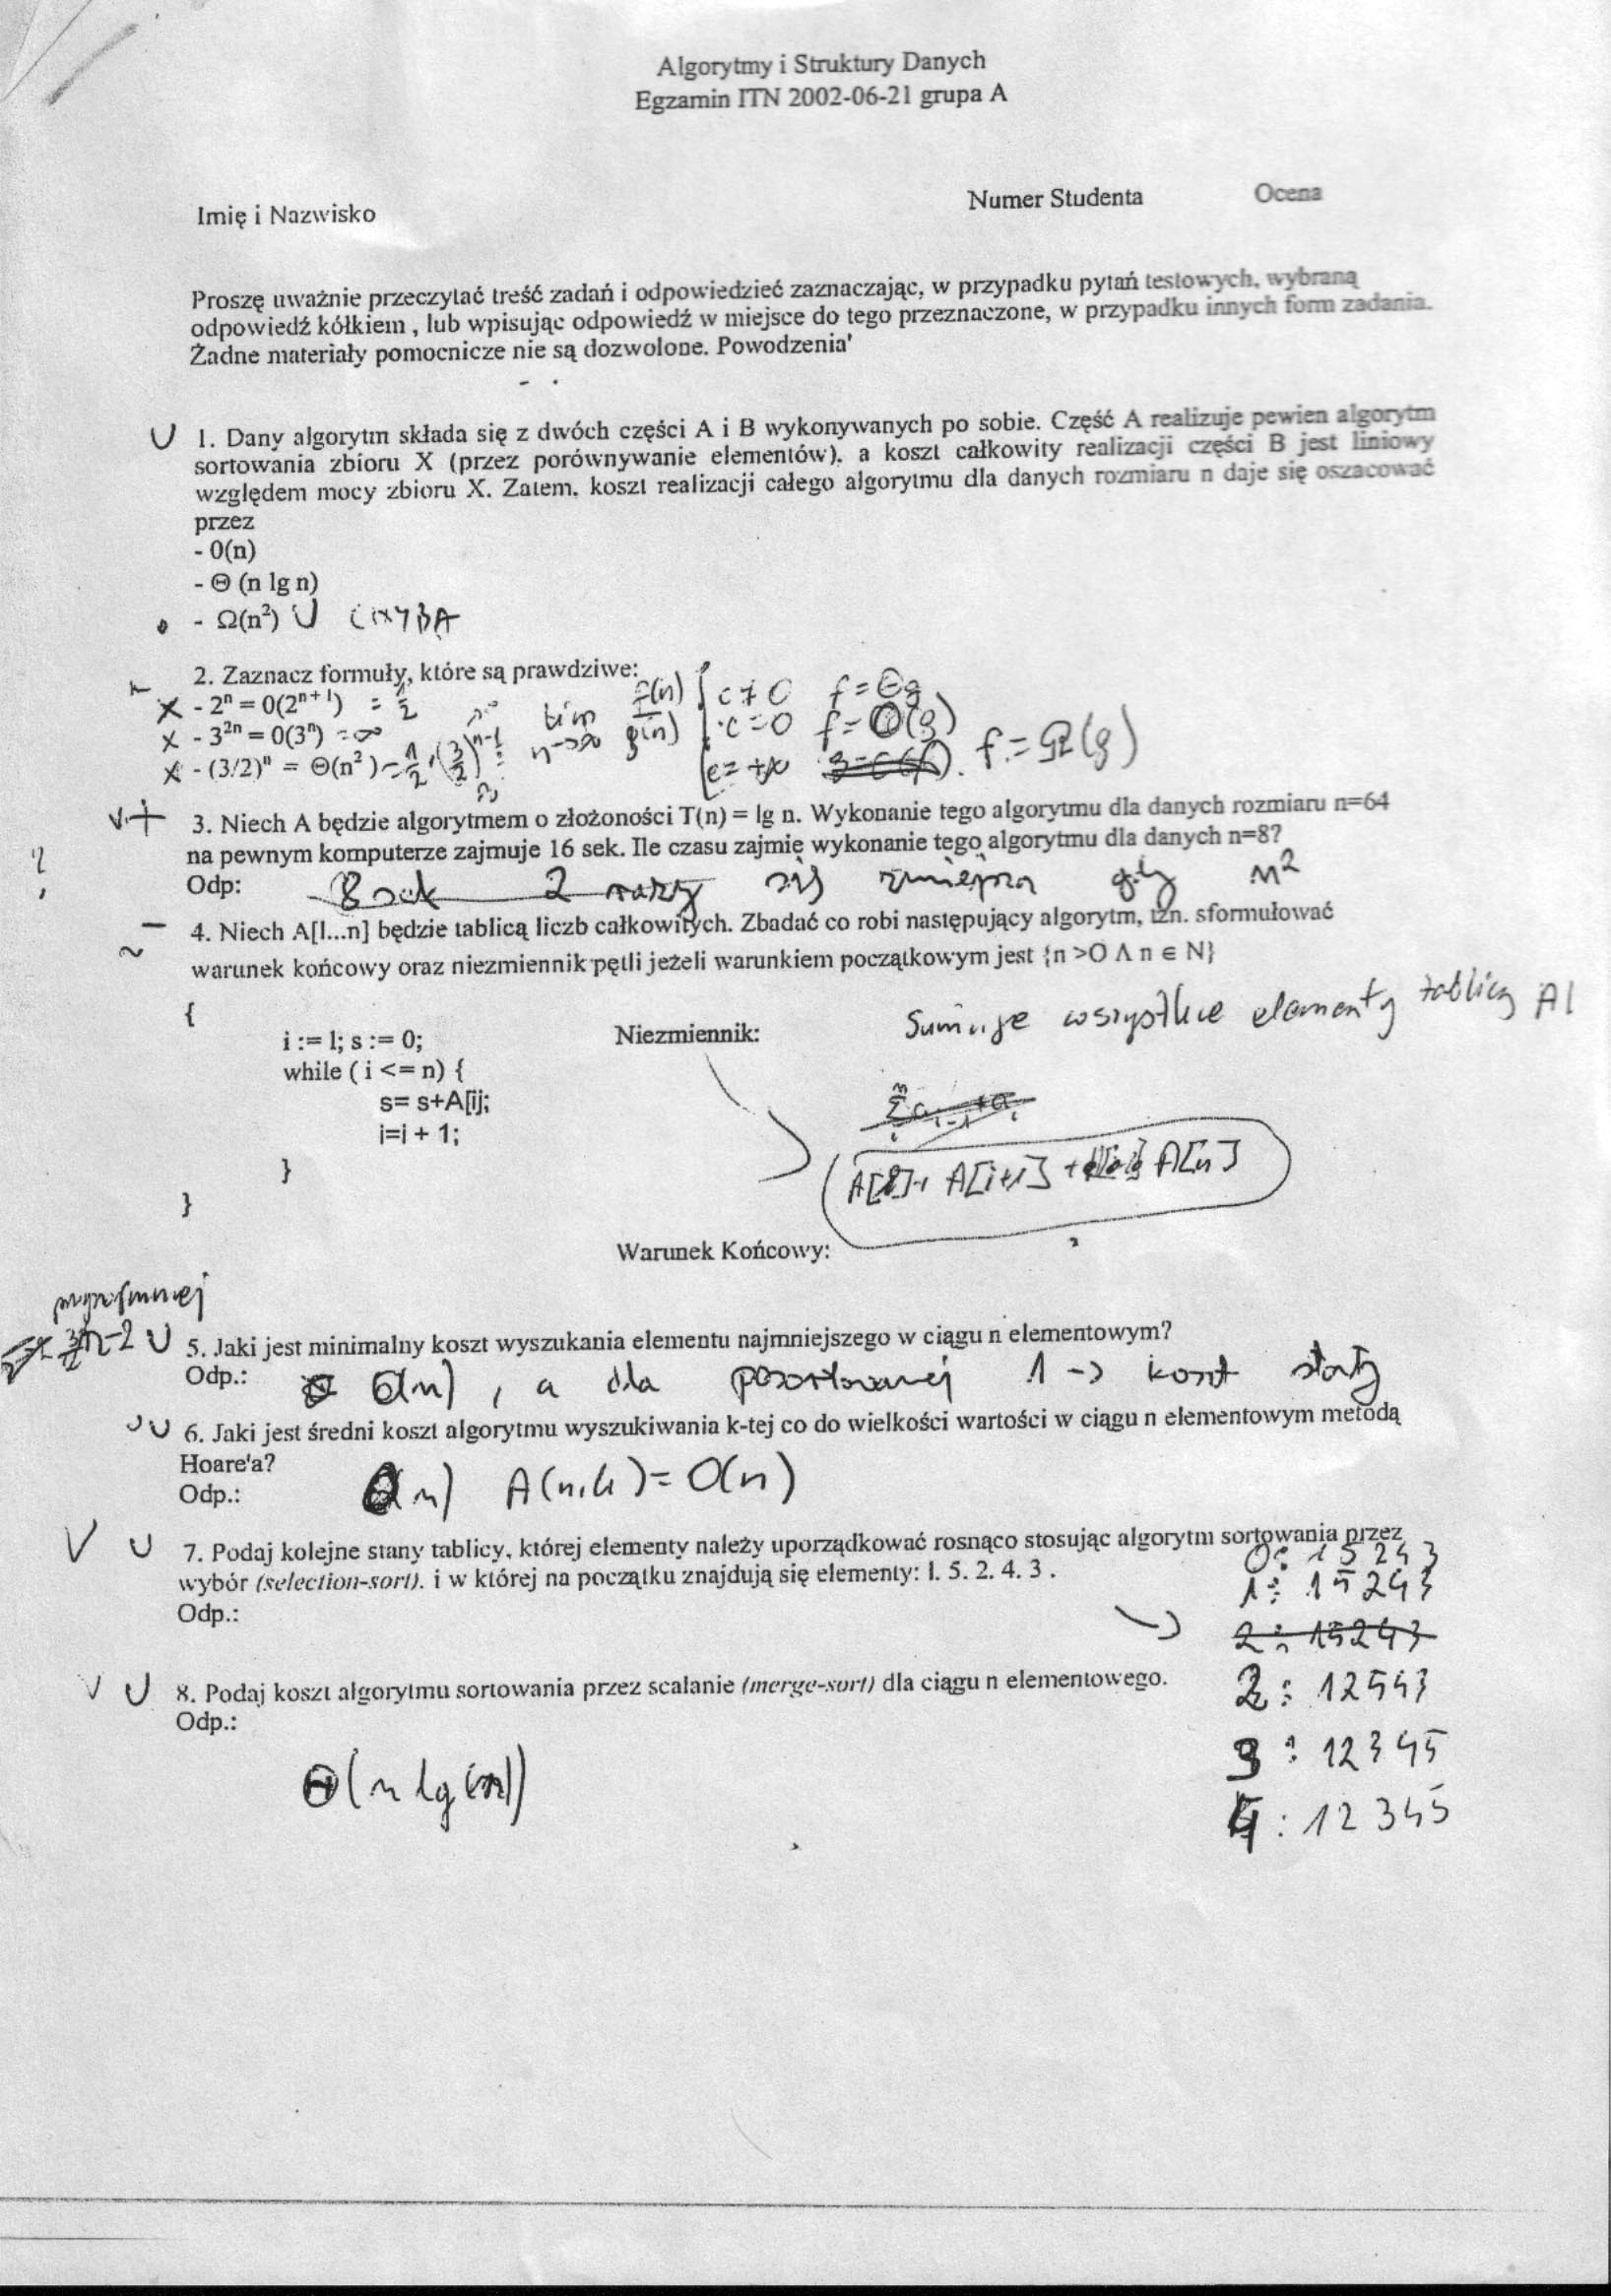 Algorytmy i Struktury Danych
Egzamin ITN 2002-06-21 grupa A
Imię i Nazwisko
Numer Studenta
Ocena
Proszę uważnie przeczytać treść zadań i odpowiedzieć zaznaczając, w przypadku pytań testowych, wybraną
odpowiedź kółkiem , lub wpisując odpowiedź w miejsce do tego przeznaczone, w przypadku innych form zadania.
Żadne materiały pomocnicze nie są dozwolone. Powodzenia'
1. Dany algorytm składa się z dwóch części A i B wykonywanych po sobie. Część A realizuje pewien algorytm
sortowania zbioru X (przez porównywanie elementów). a koszt całkowity realizacji części B jest liniowy
względem mocy zbioru X. Zatem. koszt realizacji całego algorytmu dla danych rozmiaru n daje się oszacować
przez
- 0(n)
- Θ (n lg n)
- Ω(n²) U CHYBA
2. Zaznacz formuły, które są prawdziwe:
X - 2ⁿ = 0(2ⁿ⁺¹) = 1/2
X - 3²ⁿ = 0(3ⁿ) = ∞
X - (3/2)ⁿ = Θ(n²)
lim n->∞ f(n) / g(n)
c ≠ 0 f = Θg
c = 0 f = O(g)
c = +∞ f = Ω(g)
3. Niech A będzie algorytmem o złożoności T(n) = lg n. Wykonanie tego algorytmu dla danych rozmiaru n=64
na pewnym komputerze zajmuje 16 sek. Ile czasu zajmie wykonanie tego algorytmu dla danych n=8?
Odp: 8 sek 2 razy się zmniejsza gdy n²
4. Niech A[l...n] będzie tablicą liczb całkowitych. Zbadać co robi następujący algorytm, tzn. sformułować
warunek końcowy oraz niezmiennik pętli jeżeli warunkiem początkowym jest {n >O Λ n ∈ N}
{
Sumuje wszystkie elementy tablicy A
i := l; s := 0;
Niezmiennik:
while ( i <= n) {
s= s+A[ij;
i=i + 1;
}
A[i+1] + A[n]
}
Warunek Końcowy:
5. Jaki jest minimalny koszt wyszukania elementu najmniejszego w ciągu n elementowym?
Odp.: O(n) , a dla posortowanej 1 -> koszt stały
6. Jaki jest średni koszt algorytmu wyszukiwania k-tej co do wielkości wartości w ciągu n elementowym metodą
Hoare'a?
Odp.: O(n) A(n,k) = O(n)
7. Podaj kolejne stany tablicy, której elementy należy uporządkować rosnąco stosując algorytm sortowania przez
wybór (selection-sort). i w której na początku znajdują się elementy: l. 5. 2. 4. 3 .
Odp.:
0: 1 5 2 4 3
1: 1 5 2 4 3
2: 1 5 2 4 3
2: 1 2 5 4 3
3: 1 2 3 4 5
4: 1 2 3 4 5
8. Podaj koszt algorytmu sortowania przez scalanie (merge-sort) dla ciągu n elementowego.
Odp.:
Θ(n lg(n))